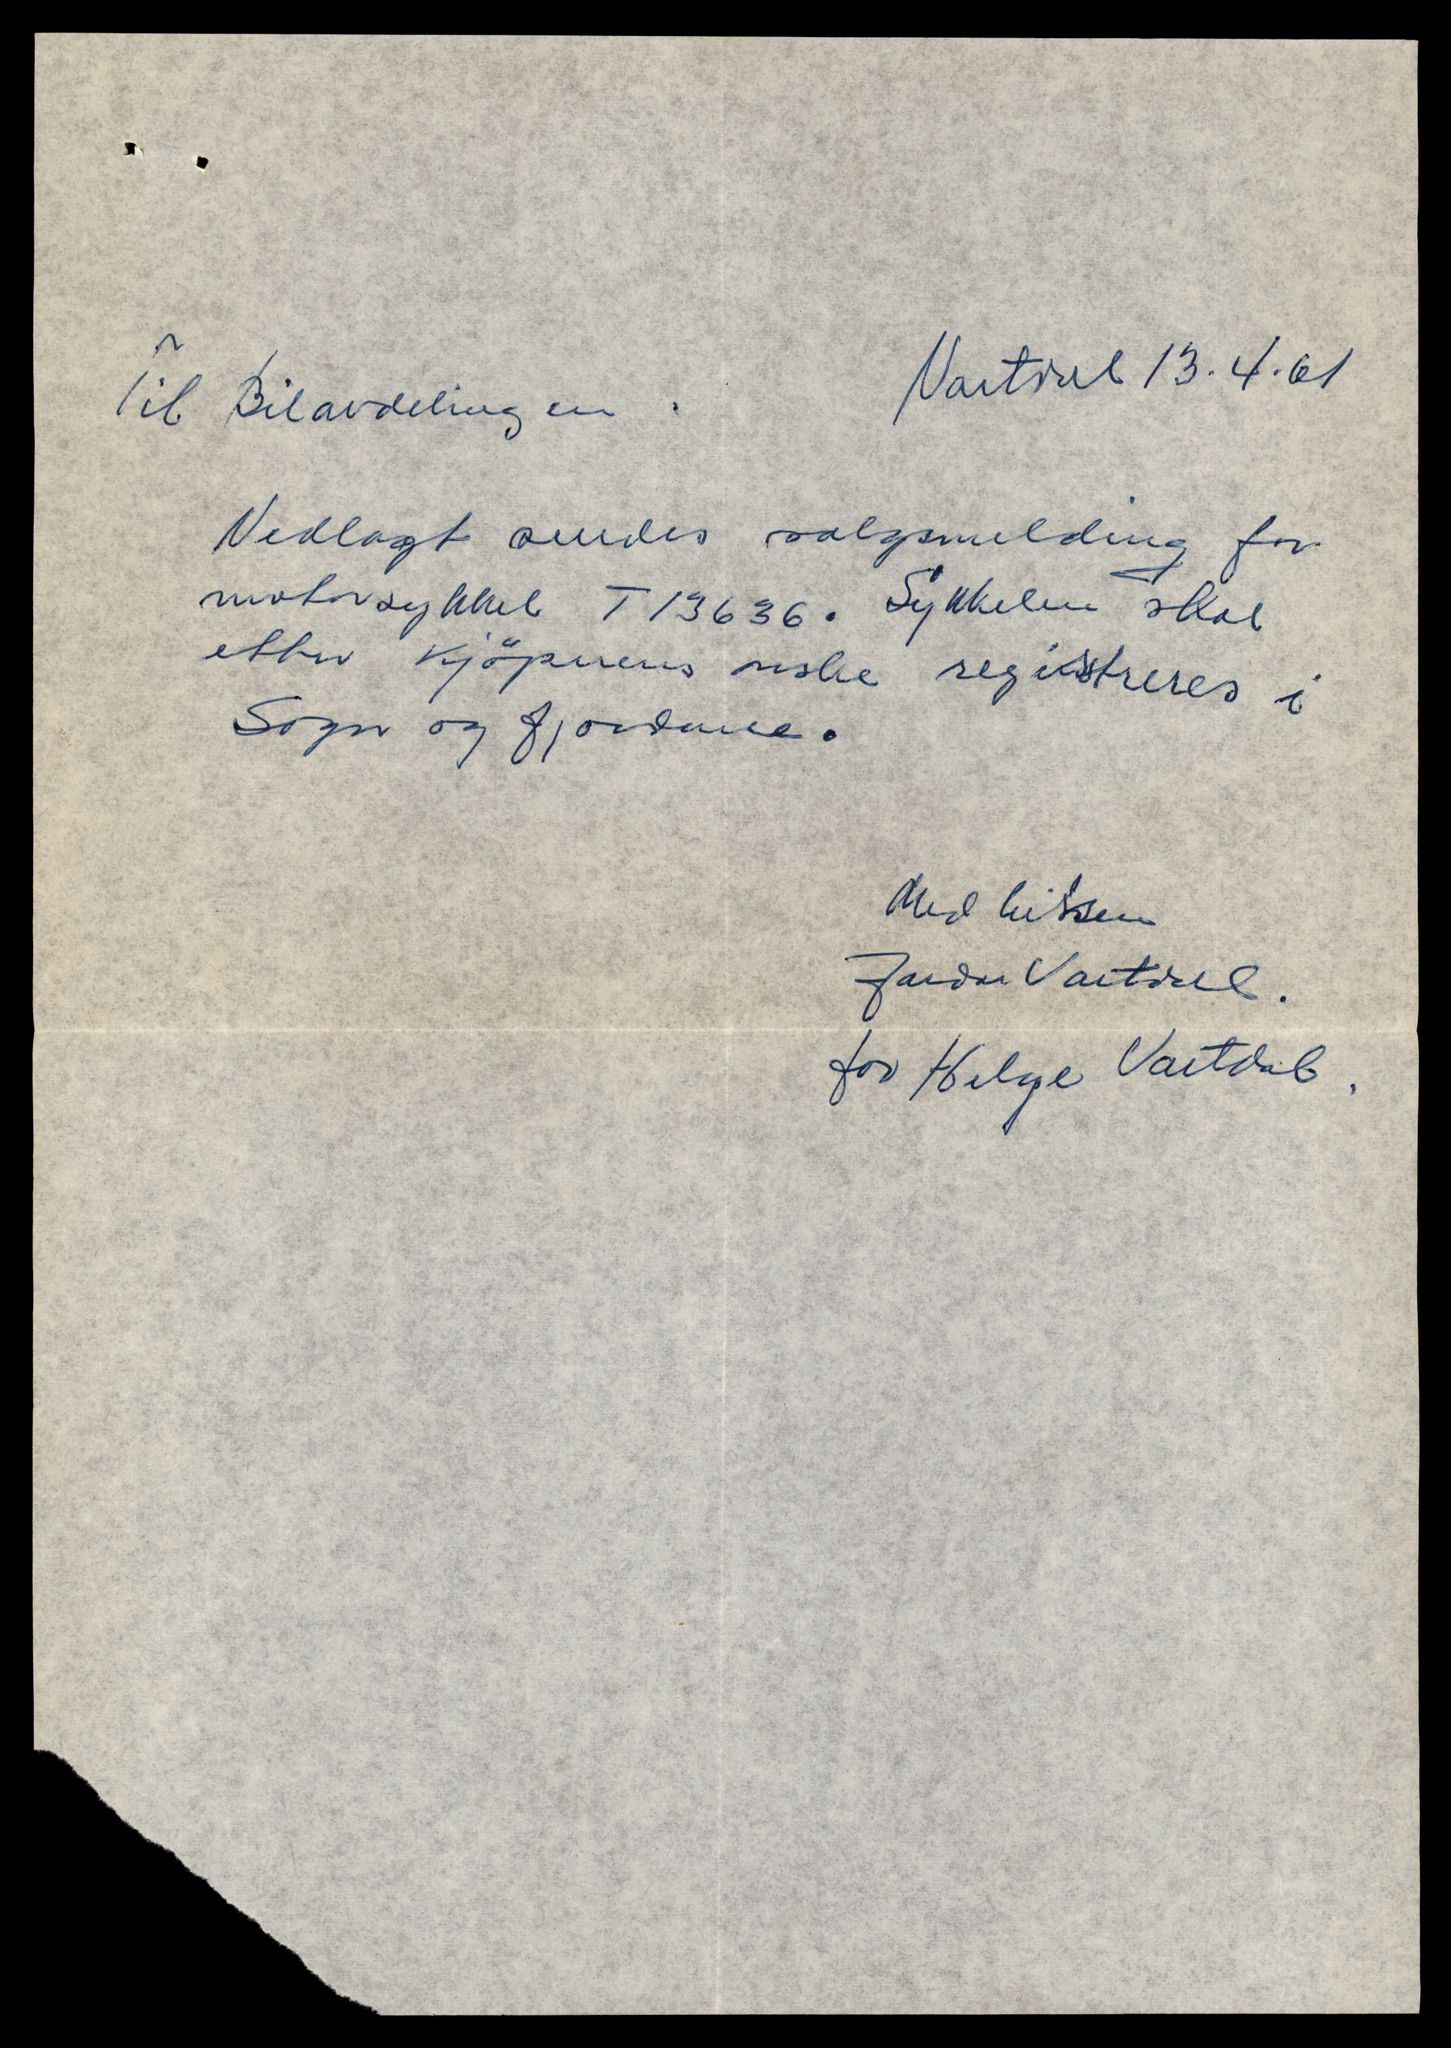 Vartdal 13.4.61
Til Bilavdelingen.
Vedlagt sendes salgsmelding for
motorsykkel T 13636. Sykkelen skal
etter kjöperens ønske registreres i
Sogn og fjordane.
Med hilsen
Vartdal.
for Helge Vartdal.